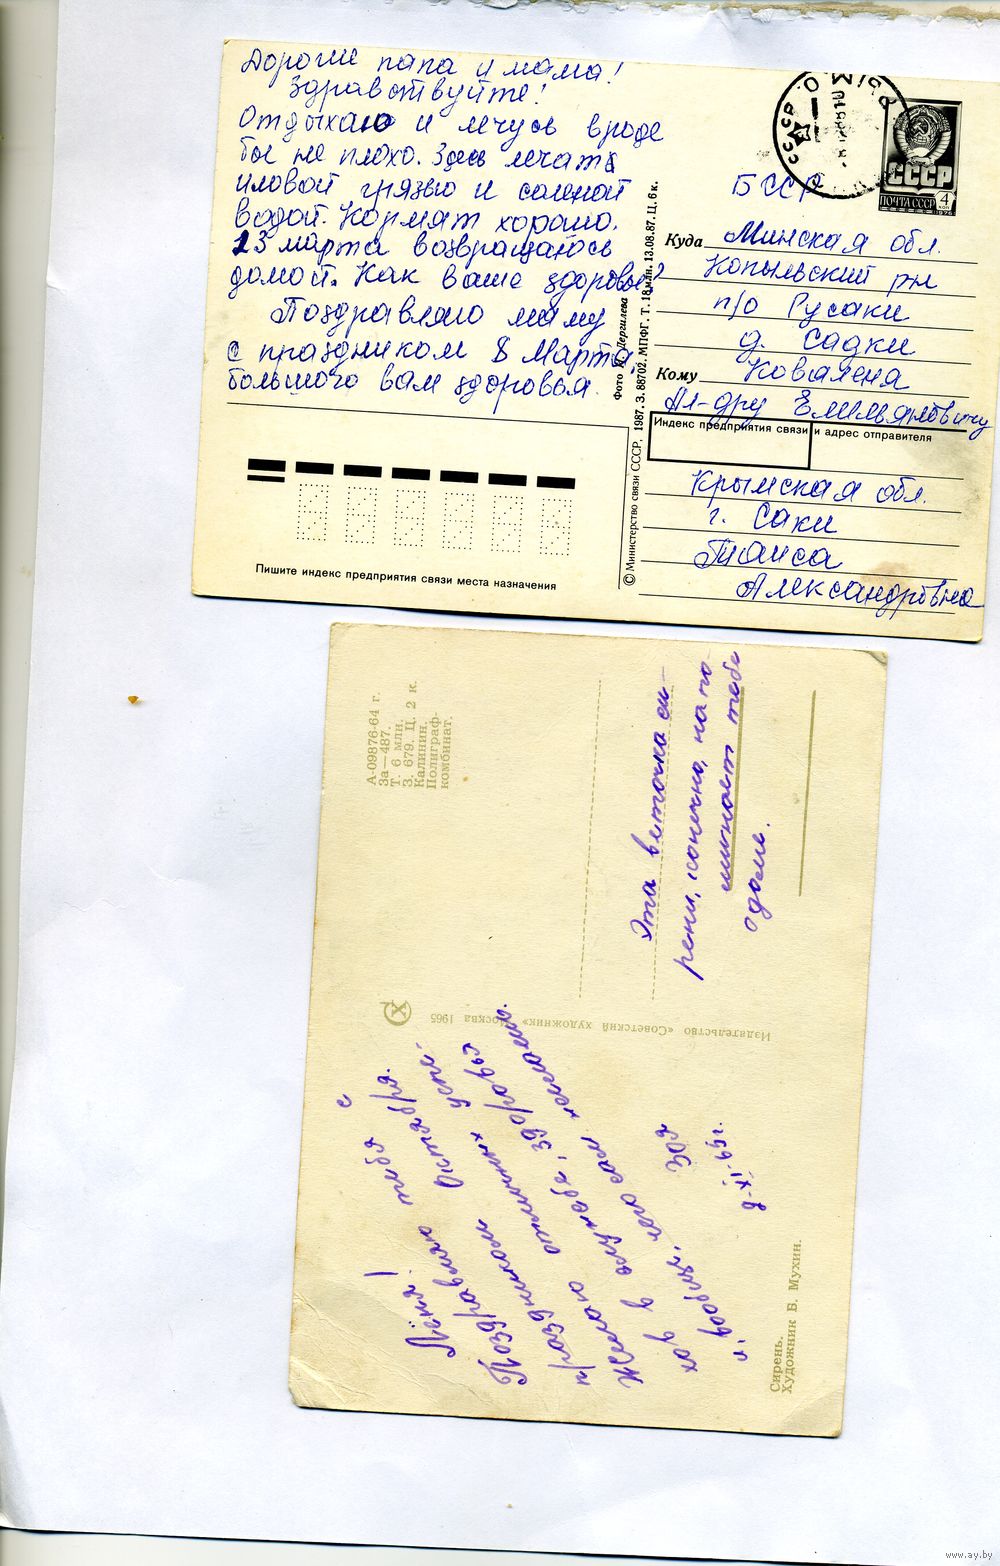 Дорогие папа и мама!
Здравствуйте!
Отдыхаю и лечусь вроде
бы не плохо. Здесь лечат
иловой грязью и соленой
водой. Кормят хорошо.
23 марта возвращаюсь
домой. Как ваше здоровье?
Поздравляю маму
с праздником 8 Марта,
большого вам здоровья.
Пишите индекс предприятия связи места назначения
Фото И. Дергилева
© Министерство связи СССР, 1987. З. 88702. МПФГ. Т. 18 млн. 13.08.87. Ц. 6 к.
СССР
СССР
ПОЧТА СССР 4 КОП
1976
БССР
Куда Минская обл.
Копыльский рн
п/о Русаки
д. Садки
Кому Ковалена
Ал-дру Емельяновичу
Индекс предприятия связи и адрес отправителя
Крымская обл.
г. Саки
Таиса
Александровна
А-09876-64 г.
За—487.
Т. 6 млн.
З. 679. Ц. 2 к.
Калинин.
Полиграф-
комбинат.
Эта веточка си-
рени, конечно, напо-
минает тебе
о доме.
Издательство «Советский художник» Москва 1965
Лёня!
Поздравляю тебя с
праздником Октября.
Желаю отличных успе-
хов в службе, здоровья
и вообще, чего сам желаешь.
9-XI-65г.
Сирень.
Художник Б. Мухин.
www.ay.by